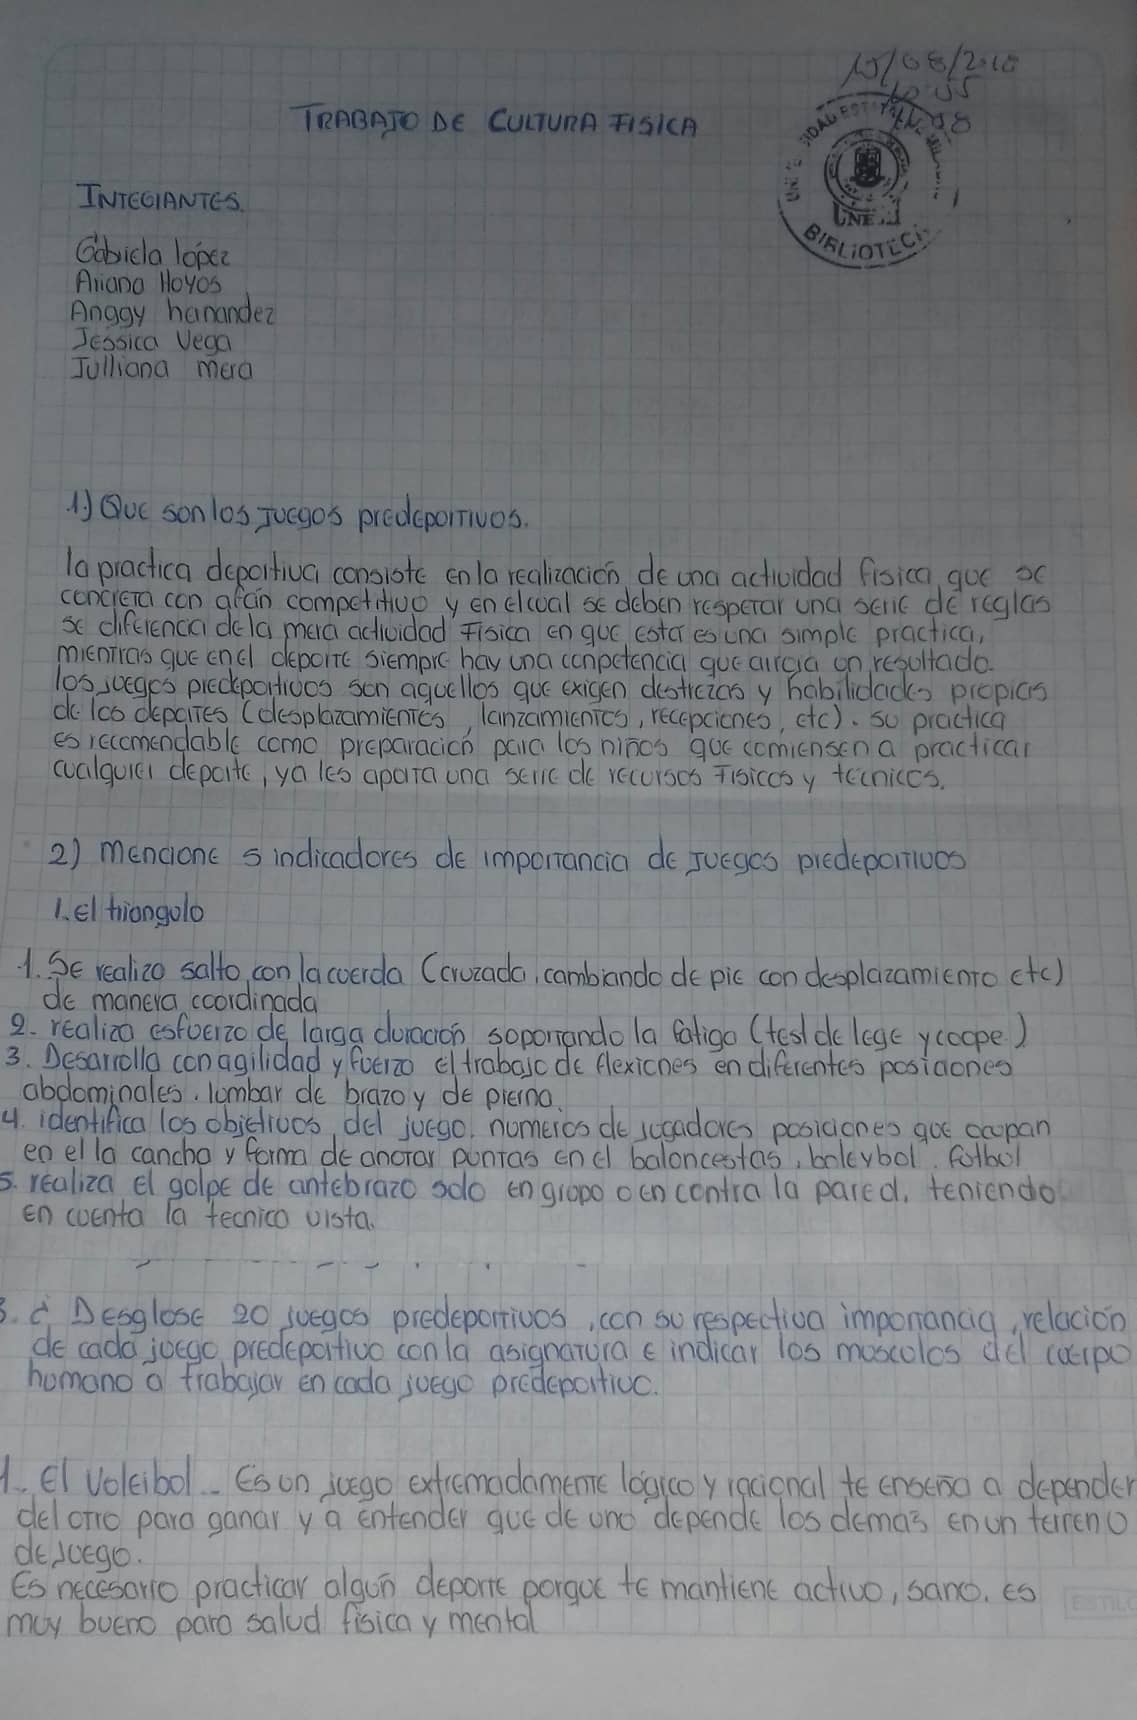 15/08/2018
TRABAJO DE CULTURA FISICA
BIBLIOTECA
INTEGRANTES.
Gabriela lópez
Ariana Hoyos
Anggy hernandez
Jessica Vega
Julliana mera
1) Que son los Juegos predeportivos.
la practica deportiva consiste en la realización de una actividad fisica, que se
concreta con afán competitivo y en el cual se deben respetar una serie de reglas
se diferencia de la mera actividad Fisica en que esta es una simple practica,
mientras que en el deporte siempre hay una conpetencia que arroja un resultado.
los juegos predeportivos son aquellos que exigen destrezas y habilidades propias
de los deportes (desplazamientos, lanzamientos, recepciones, etc). su practica
es recomendable como preparación para los niños que comiensen a practicar
cualquier deporte, ya les aporta una serie de recursos Fisicos y tecnicos.
2) mencione 5 indicadores de importancia de Juegos predeportivos
1. El triangulo
1. Se realizo salto con la cuerda (cruzado, cambiando de pie con desplazamiento etc)
de manera coordinada
2. realiza esfuerzo de larga duración soportando la fatiga (test de lege y coope)
3. Desarrolla con agilidad y fuerzo el trabajo de flexiones en diferentes posiciones
abdominales, lumbar de brazo y de pierna.
4. identifica los objetivos del juego, numeros de jugadores posiciones que ocupan
en el la cancha y forma de anotar puntas en el baloncestas, boleybol, futbol
5. realiza el golpe de antebrazo solo en grupo o en contra la pared, teniendo
en cuenta la tecnico vista.
3. ¿ Desglose 20 juegos predeportivos, con su respectiva importancia, relación
de cada juego predeportivo con la asignatura e indicar los musculos del cuerpo
humano a trabajar en cada juego predeportivo.
1.. El voleibol.. Es un juego extremadamente lógico y racional te enseña a depender
del otro para ganar y a entender que de uno depende los demas en un terreno
de juego.
Es necesario practicar algún deporte porque te mantiene activo, sano, es
muy bueno para salud física y mental